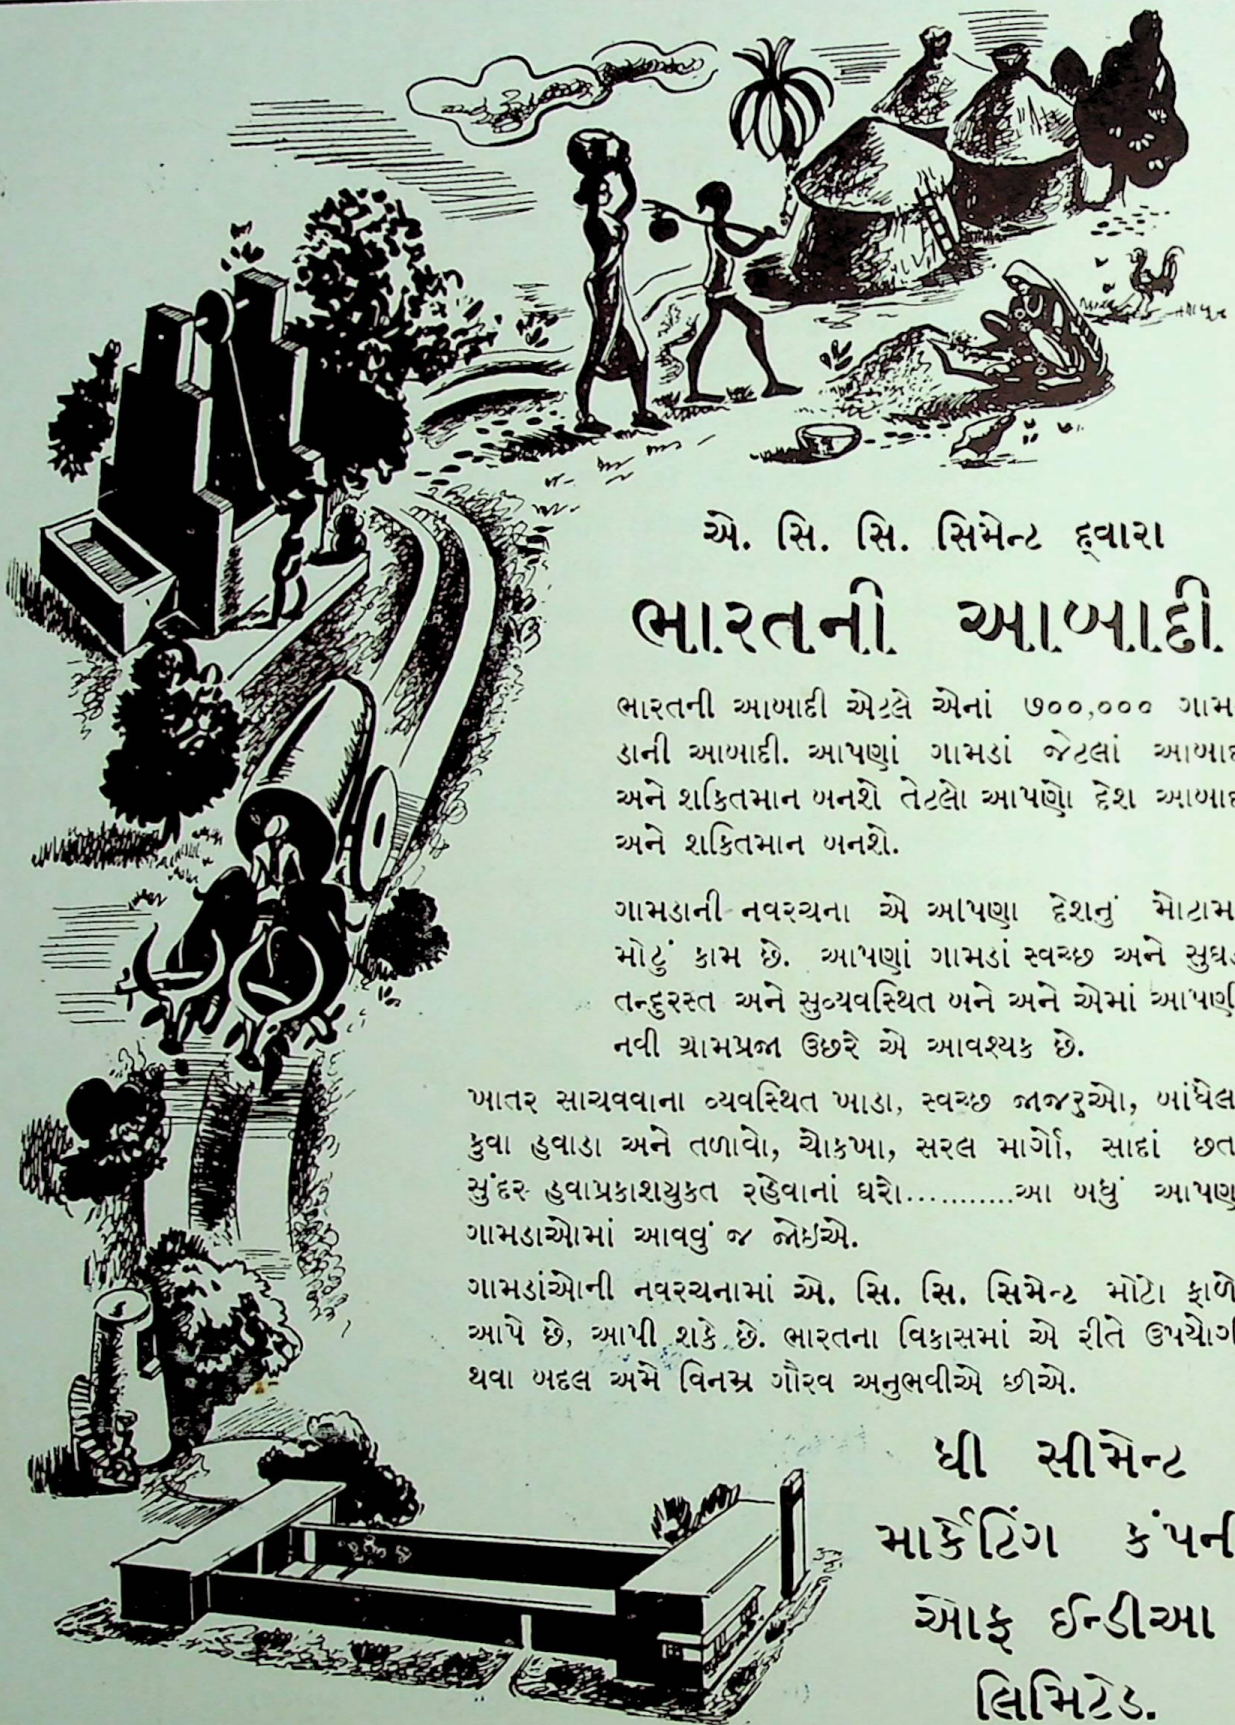 એ. સિ. સિ. સિમેન્ટ દ્વારા
ભારતની આબાદી.
ભારતની આબાદી એટલે એનાં ૭૦૦,૦૦૦ ગામ-
ડાની આબાદી. આપણાં ગામડાં જેટલાં આબાદ
અને શકિતમાન બનશે તેટલો આપણો દેશ આબાદ
અને શકિતમાન બનશે.
ગામડાની નવરચના એ આપણા દેશનું મોટામાં
મોટું કામ છે. આપણાં ગામડાં સ્વચ્છ અને સુઘડ
તન્દુરસ્ત અને સુવ્યવસ્થિત બને અને એમાં આપણી
નવી ગ્રામપ્રજા ઉછરે એ આવશ્યક છે.
ખાતર સાચવવાના વ્યવસ્થિત ખાડા, સ્વચ્છ જાજરુઓ, બાંધેલા
કુવા હવાડા અને તળાવો, ચોકખા, સરલ માર્ગો, સાદાં છતાં
સુંદર હવાપ્રકાશયુકત રહેવાનાં ઘરો...........આ બધું આપણાં
ગામડાઓમાં આવવું જ જોઇએ.
ગામડાંઓની નવરચનામાં એ. સિ. સિ. સિમેન્ટ મોટો ફાળો
આપે છે, આપી શકે છે. ભારતના વિકાસમાં એ રીતે ઉપયોગી
થવા બદલ અમે વિનમ્ર ગૌરવ અનુભવીએ છીએ.
ધી સીમેન્ટ
માર્કેટિંગ કંપની
ઓફ ઈન્ડીઆ
લિમિટેડ.